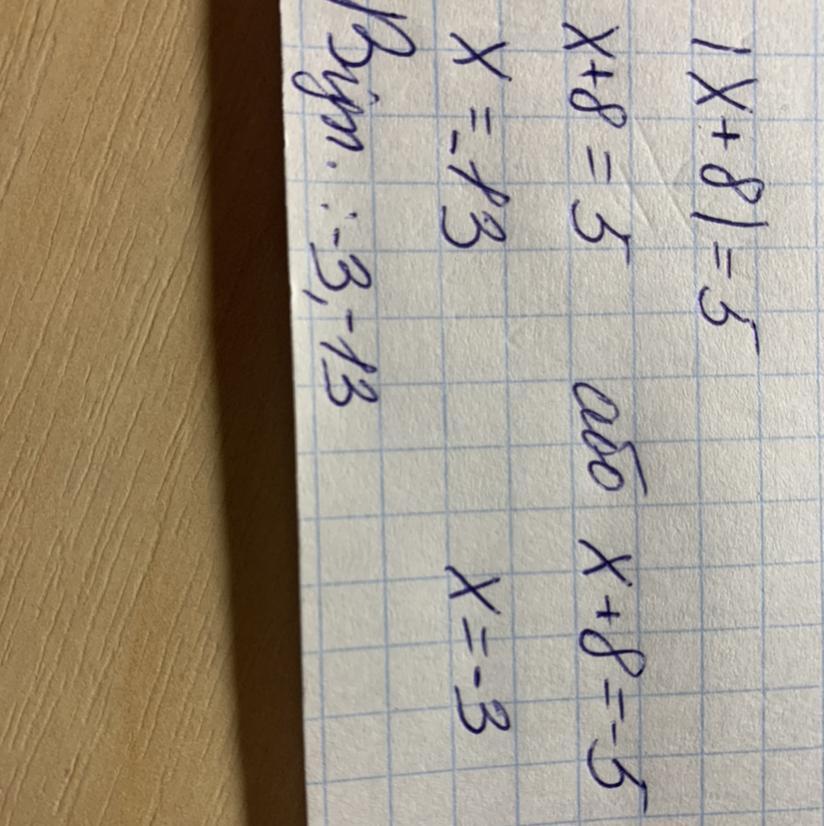 |x+8|=5
x+8=5 або x+8=-5
x=-13 x=-3
Відп.:-3,-13